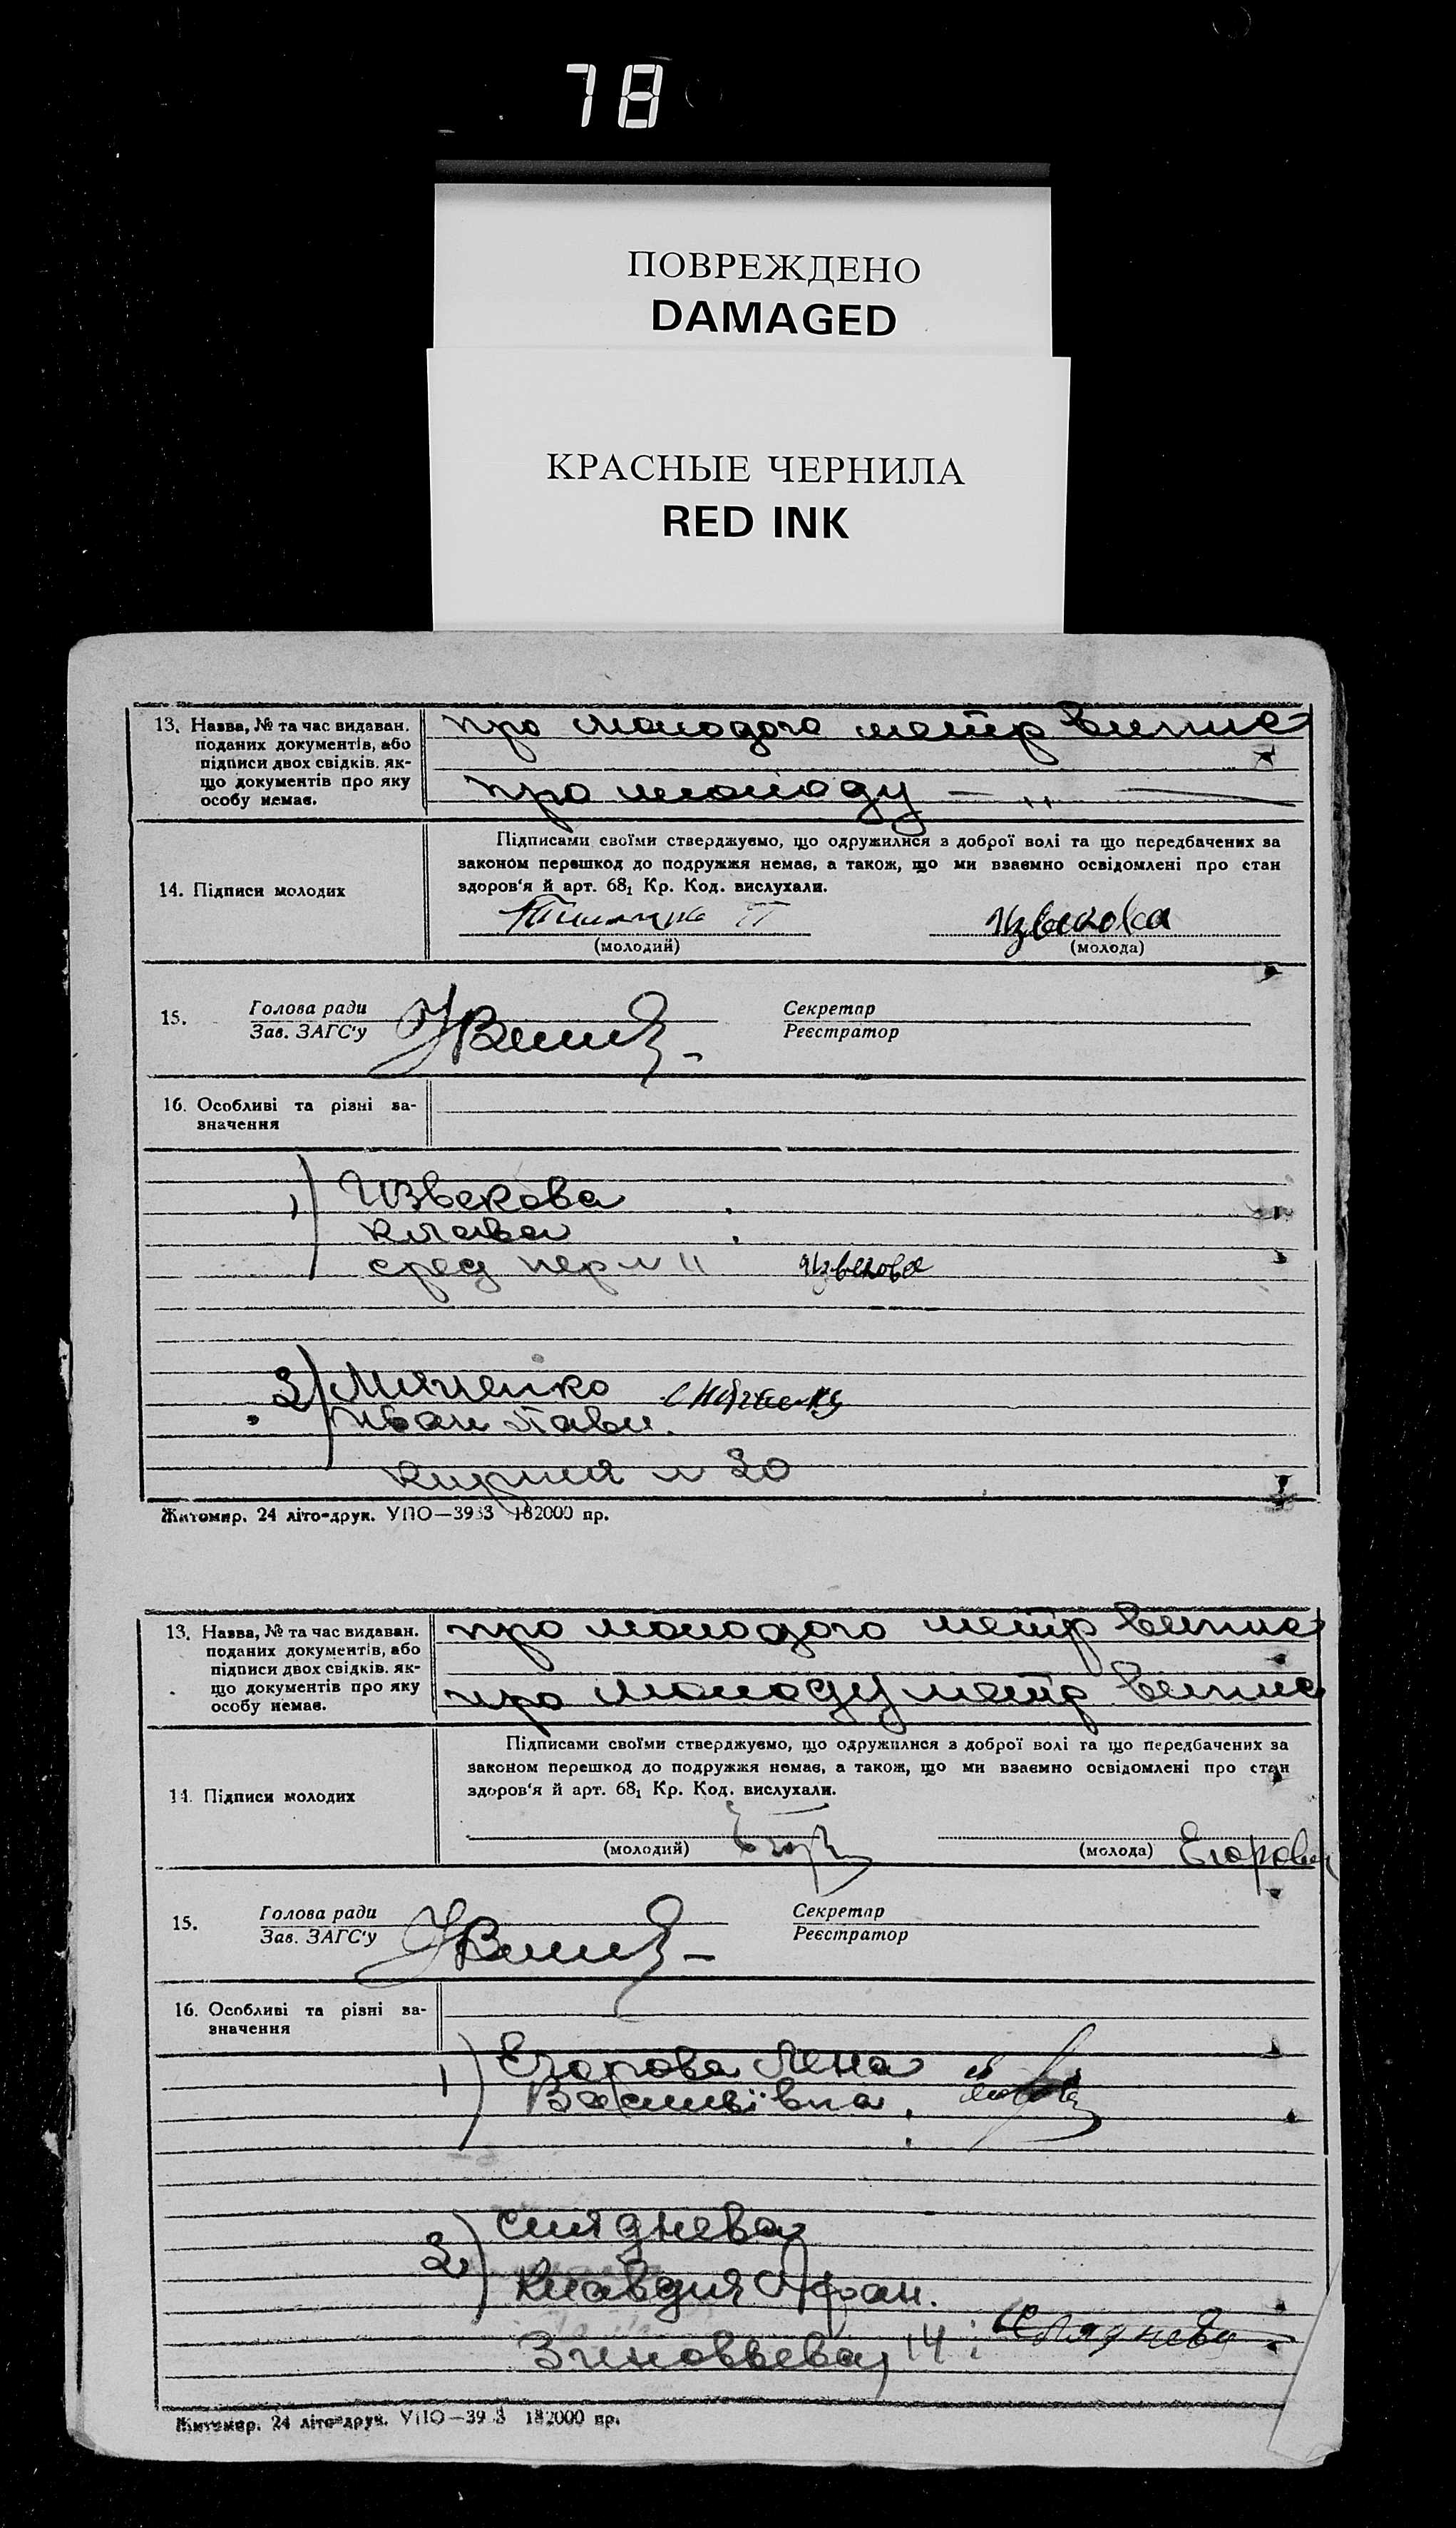 78
ПОВРЕЖДЕНО
DAMAGED
КРАСНЫЕ ЧЕРНИЛА
RED INK
13. Назва, № та час видаван.
поданих документів, або
підписи двох свідків, як-
що документів про яку
особу немає.
про молодого метр випис
про молоду — " —
14. Підписи молодих
Підписами своїми стверджуємо, що одружилися з доброї волі та що передбачених за
законом перешкод до подружжя немає, а також, що ми взаємно освідомлені про стан
здоров'я й арт. 68₁ Кр. Код. вислухали.
Извекова
(молодий) (молода)
15. Голова ради Секретар
Зав. ЗАГС'у Реєстратор
16. Особливі та різні за-
значення
1) Извекова
Клава
сред пер № 11 Извекова
2) Миненко
Иван Павл.
Кирпич № 20
Житомир. 24 літо-друк. УПО—3933 182000 пр.
13. Назва, № та час видаван.
поданих документів, або
підписи двох свідків, як-
що документів про яку
особу немає.
про молодого метр випис
про молоду метр випис
14. Підписи молодих
Підписами своїми стверджуємо, що одружилися з доброї волі та що передбачених за
законом перешкод до подружжя немає, а також, що ми взаємно освідомлені про стан
здоров'я й арт. 68₁ Кр. Код. вислухали.
(молодий) (молода) Егорова
15. Голова ради Секретар
Зав. ЗАГС'у Реєстратор
16. Особливі та різні за-
значення
1) Егорова Лена
Васильївна.
2) Сляднева
Клавдия Афан.
Зиновьева, 14 Сляднева
Житомир. 24 літо-друк. УПО—39 3 182000 пр.